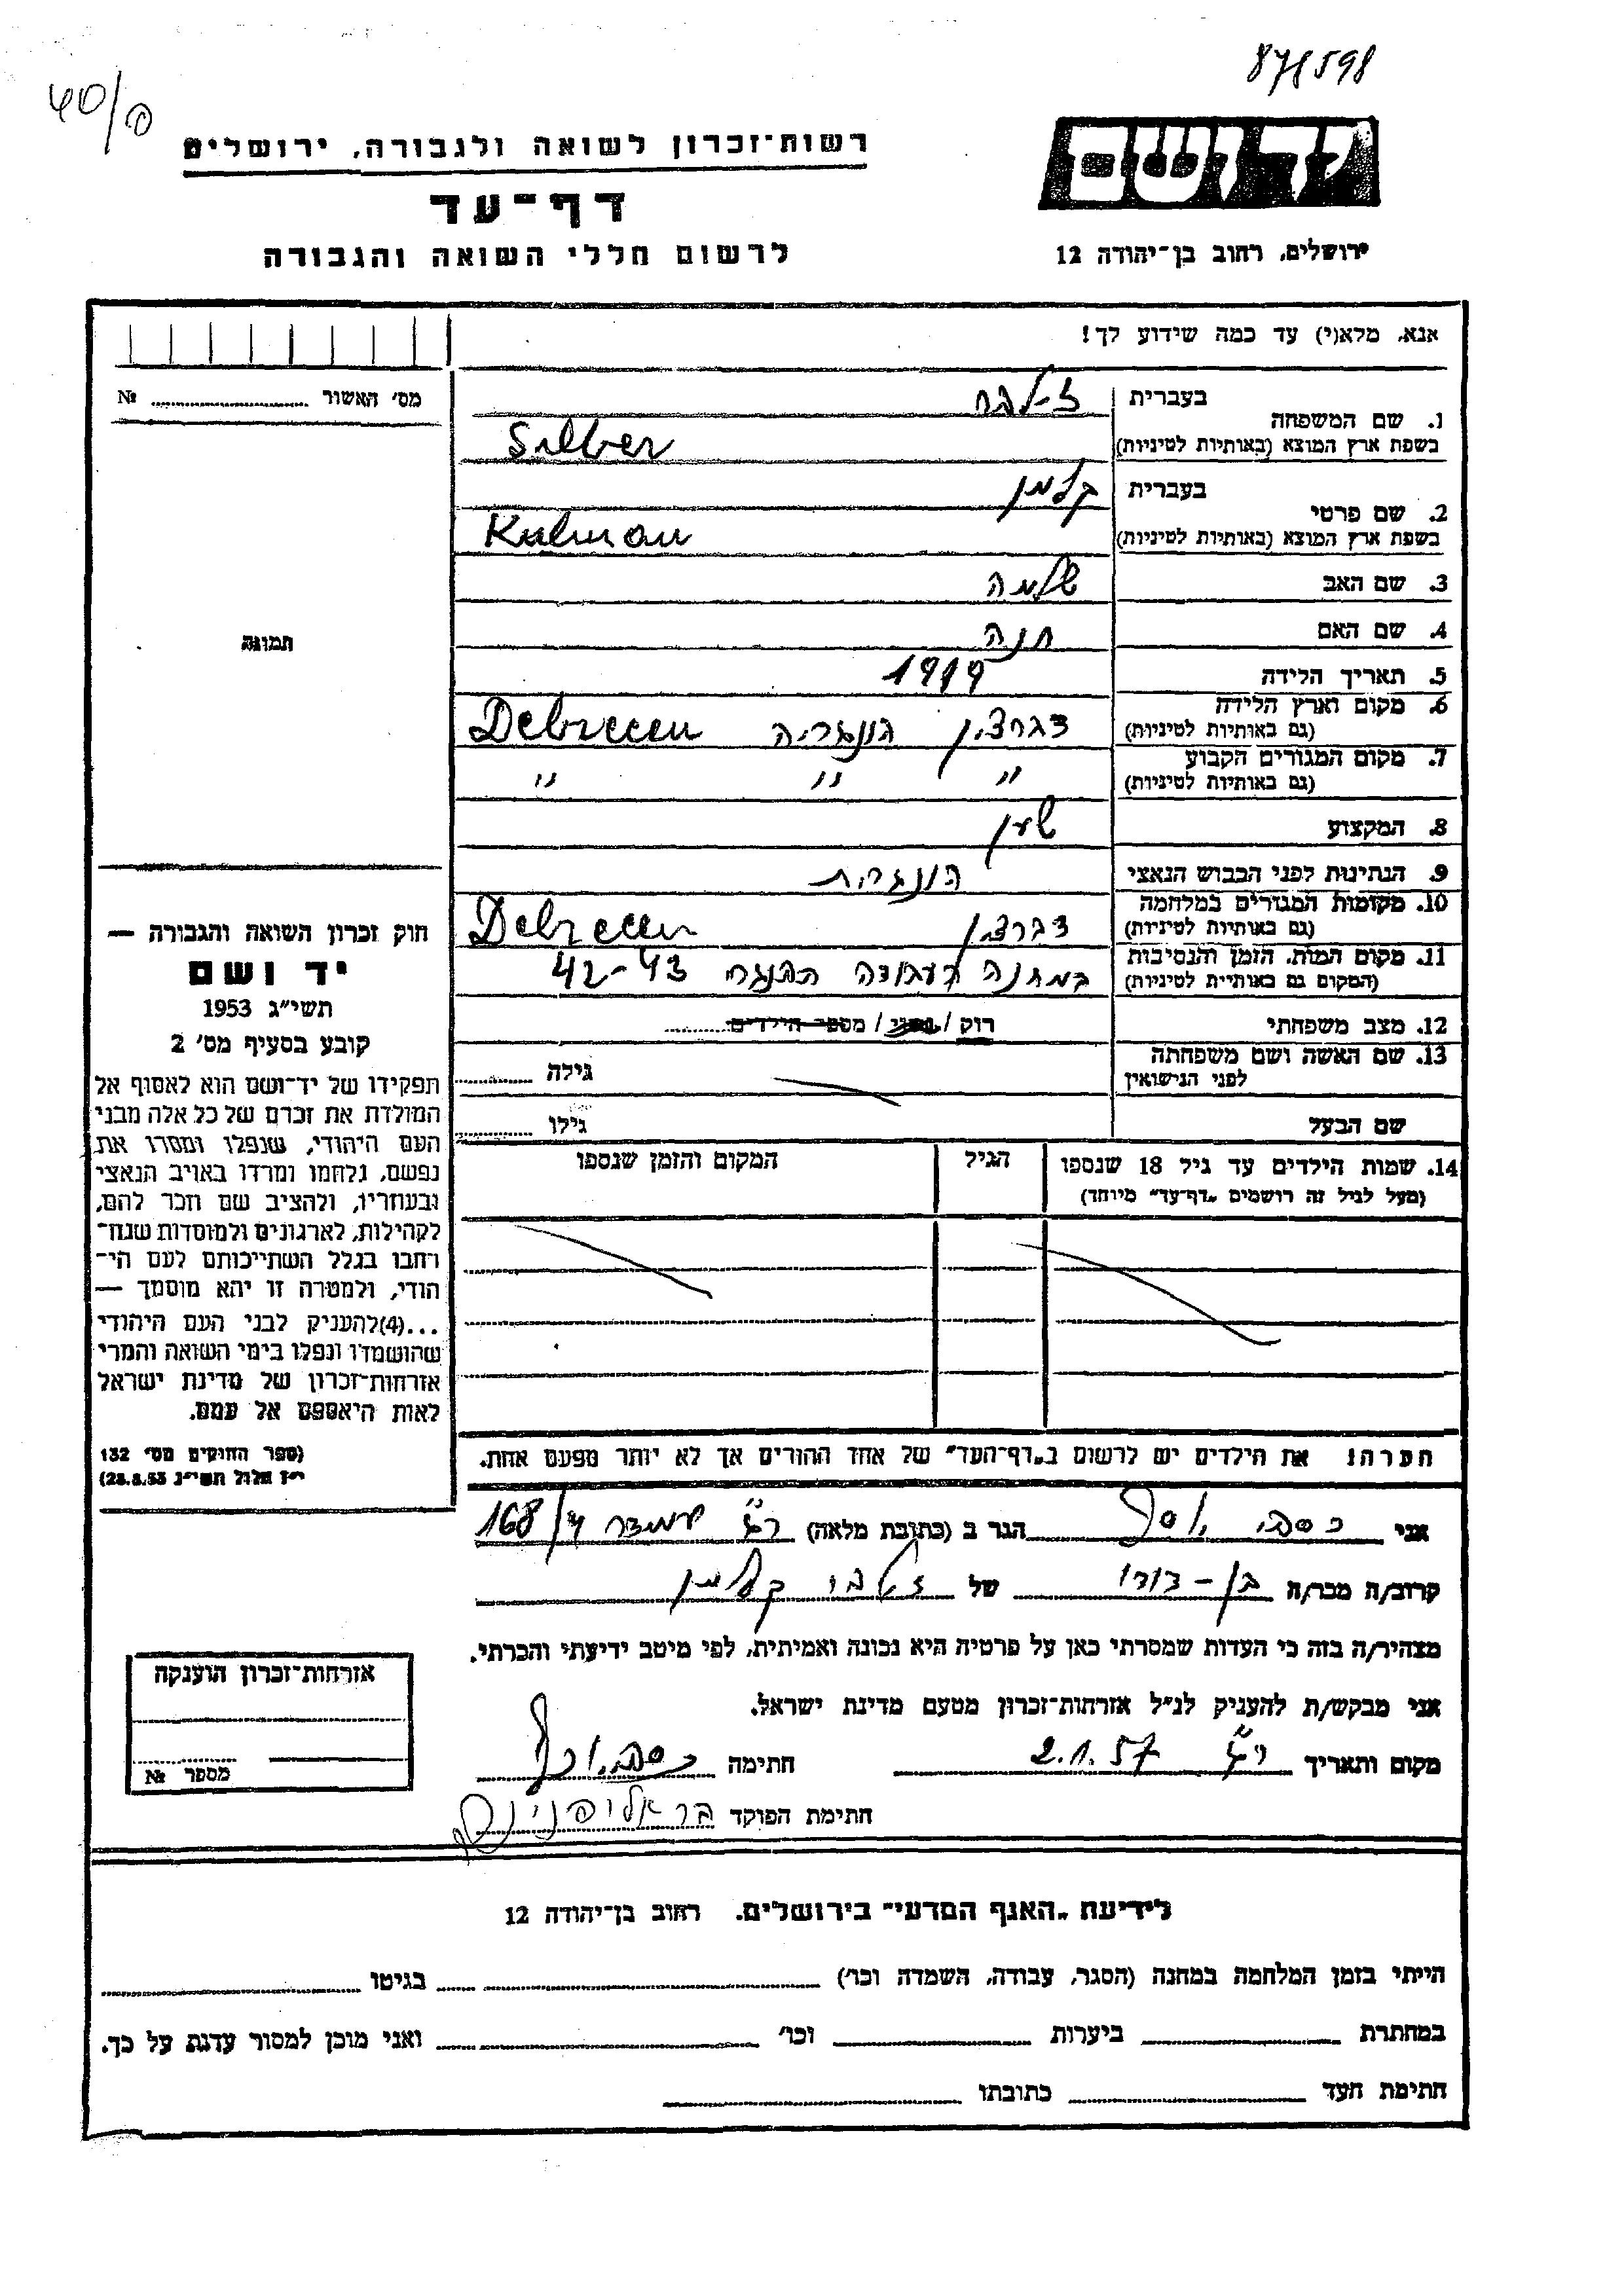 871598
40/פ
רשות־זכרון לשואה ולגבורה, ירושלים
דף־עד
לרשום חללי השואה והגבורה
יד ושם
ירושלים, רחוב בן־יהודה 12
אנא, מלא(י) עד כמה שידוע לך!
מס' האשור № 
1. שם המשפחה בעברית זילבר
בשפת ארץ המוצא (באותיות לטיניות) Silber
2. שם פרטי בעברית קלמן
בשפת ארץ המוצא (באותיות לטיניות) Kalman
3. שם האב שלמה
4. שם האם חנה
תמונה
5. תאריך הלידה 1919
6. מקום וארץ הלידה (גם באותיות לטיניות) דברצין הונגריה Debrecen
7. מקום המגורים הקבוע (גם באותיות לטיניות) " " "
8. המקצוע שען
9. הנתינות לפני הכבוש הנאצי הונגרית
10. מקומות המגורים במלחמה (גם באותיות לטיניות) דברצין Debrecen
11. מקום המות, הזמן והנסיבות (המקום גם באותיות לטיניות) במחנה העבודה 42-43
12. מצב משפחתי רוק / נשוי / מספר הילדים
13. שם האשה ושם משפחתה לפני הנישואין גילה
שם הבעל גילו
14. שמות הילדים עד גיל 18 שנספו הגיל המקום והזמן שנספו
(מעל לגיל זה רושמים "דף־עד" מיוחד)
חוק זכרון השואה והגבורה —
יד ושם
תשי"ג 1953
קובע בסעיף מס' 2
תפקידו של יד־ושם הוא לאסוף אל
המולדת את זכרם של כל אלה מבני
העם היהודי, שנפלו ומסרו את
נפשם, נלחמו ומרדו באויב הנאצי
ובעוזריו, ולהציב שם וזכר להם,
לקהילות, לארגונים ולמוסדות שנח־
רבו בגלל השתייכותם לעם הי־
הודי, ולמטרה זו יהא מוסמך —
...(4)להעניק לבני העם היהודי
שהושמדו ונפלו בימי השואה והמרי
אזרחות־זכרון של מדינת ישראל
לאות היאספם אל עמם.
(ספר החוקים מס' 132
י"ז אלול תשי"ג 28.8.53)
הערה! את הילדים יש לרשום ב"דף־העד" של אחד ההורים אך לא יותר מפעם אחת.
אני יוסף הגר ב (כתובת מלאה) 168/
קרוב/ה מכר/ה בן-דודו של זילבר קלמן
מצהיר/ה בזה כי העדות שמסרתי כאן על פרטיה היא נכונה ואמיתית, לפי מיטב ידיעתי והכרתי.
אני מבקש/ת להעניק לנ"ל אזרחות־זכרון מטעם מדינת ישראל.
מקום ותאריך 2.1.57 חתימה
חתימת הפוקד
אזרחות־זכרון הוענקה
מספר №
לידיעת "האגף המדעי" בירושלים, רחוב בן־יהודה 12
הייתי בזמן המלחמה במחנה (הסגר, עבודה, השמדה וכו') בגיטו
במחתרת ביערות וכו' ואני מוכן למסור עדות על כך.
חתימת העד כתובתו